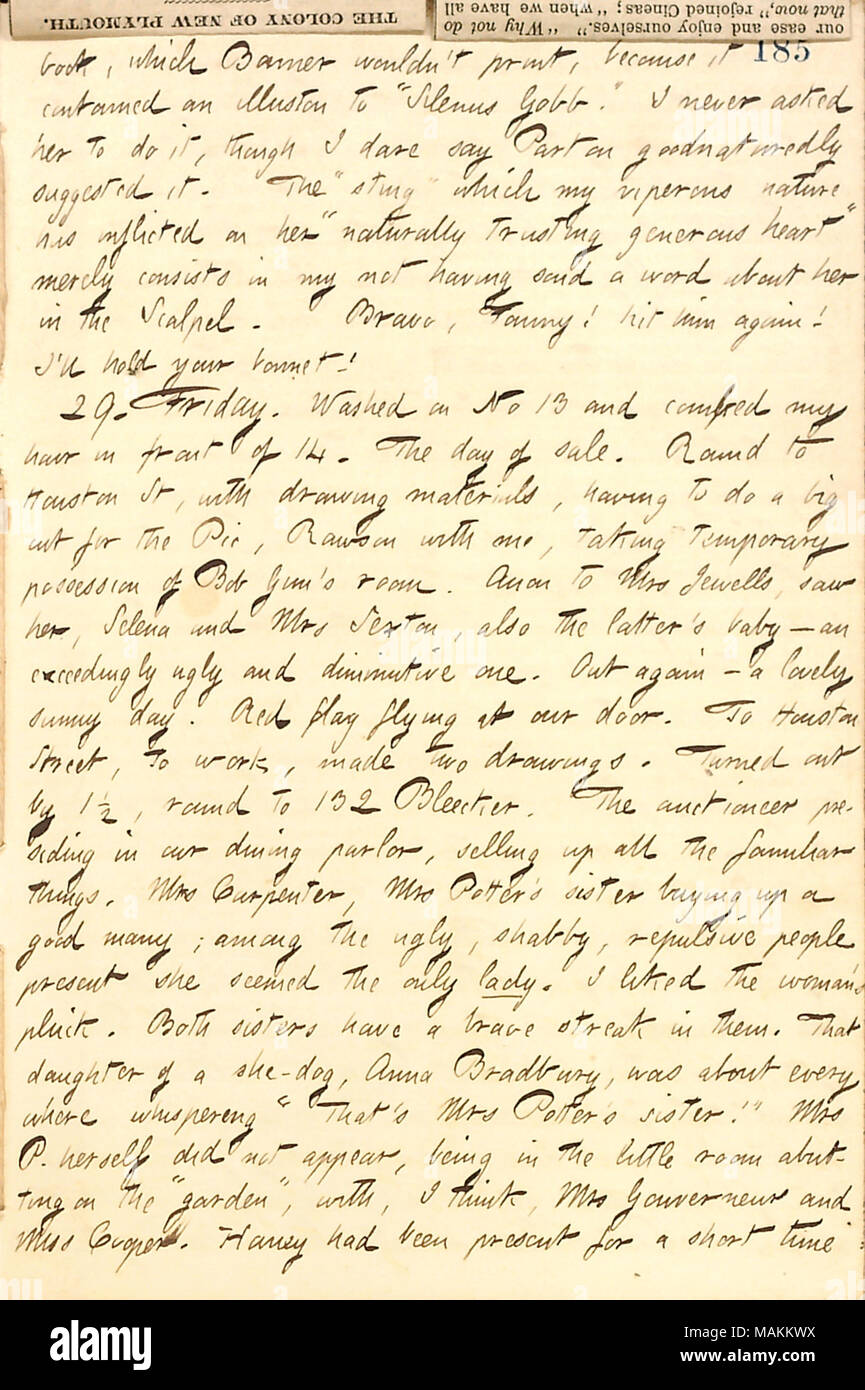 THE COLONY OF NEW PLYMOUTH.
our ease and enjoy ourselves." "Why not do
that now," rejoined Cineas; "when we have all
185
book, which Bonner wouldn't print, because it
contained an illusion to "Silenus Gobb." I never asked
her to do it, though I dare say Parton goodnaturedly
suggested it. The "sting" which my viperous nature
has inflicted on her "naturally trusting generous heart"
merely consists in my not having said a word about her
in the Scalpel. Bravo, Fanny! hit him again!
I'll hold your bonnet!
29. Friday. Washed in No 13 and combed my
hair in front of 14. The day of sale. Round to
Houston St, with drawing materials, having to do a big
cut for the Pic, Rawson with me, taking temporary
possession of Bob Gun's room. Anon to Mrs Jewells, saw
her, Selena and Mrs Sexton, also the latter's baby — an
exceedingly ugly and diminutive one. Out again — a lovely
sunny day. Red flag flying at our door. To Houston
Street, to work, made two drawings. Turned out
by 1 ½, round to 132 Bleecker. The auctioneer pre-
siding in our dining parlor, selling up all the familiar
things. Mrs Carpenter, Mrs Potter's sister buying up a
good many; among the ugly, shabby, repulsive people
present she seemed the only lady. I liked the woman's
pluck. Both sisters have a brave streak in them. That
daughter of a she-dog, Anna Bradbury, was about every
where whispering "That's Mrs Potter's sister!" Mrs
P. herself did not appear, being in the little room abut-
ting on the "garden", with, I think, Mrs Gouverneur and
Miss Cooper. Haney had been present for a short time
alamy
Image ID: MAKKWX
www.alamy.com